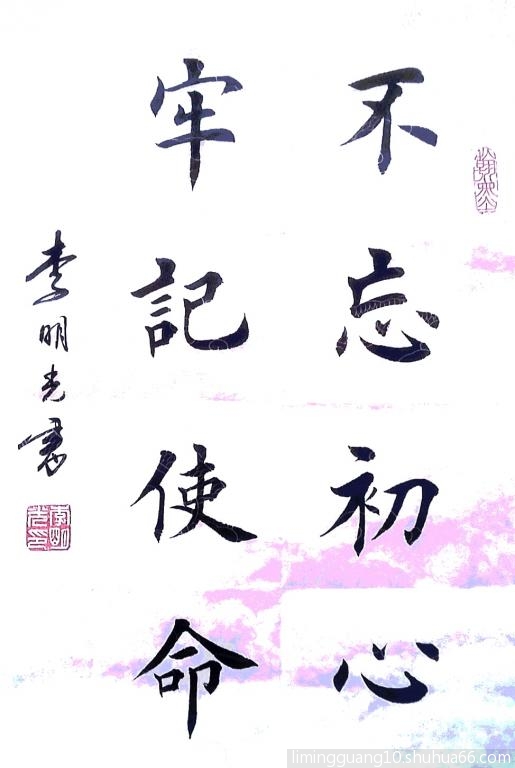 不忘初心
牢記使命
李明光書
翰墨
李明光印
limingguang10.shuhua66.com